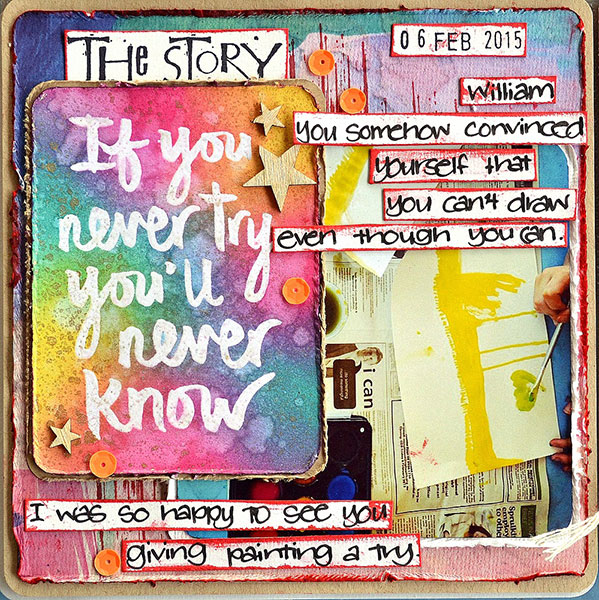 THE STORY
06 FEB 2015
William
You somehow convinced
yourself that
you can't draw
even though you can.
If you
never try
you'll
never
know
i can
I was so happy to see you
giving painting a try.